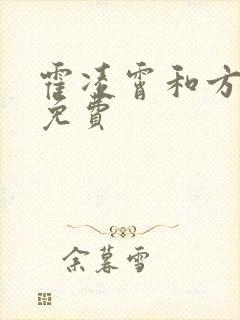 霍凌霄和方
免費
余暮雪